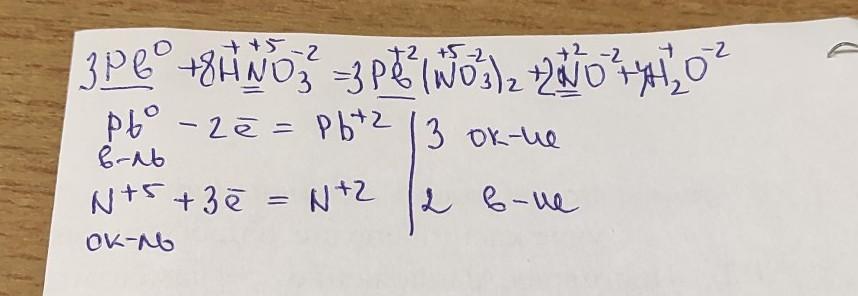 3Pb⁰ + 8H⁺N⁺⁵O₃⁻² = 3Pb⁺²(N⁺⁵O₃⁻²)₂ + 2N⁺²O⁻² + 4H₂⁺O⁻²
Pb⁰ - 2ē = Pb⁺² | 3 ок-ие
в-ль
N⁺⁵ + 3ē = N⁺² | 2 в-ие
ок-ль